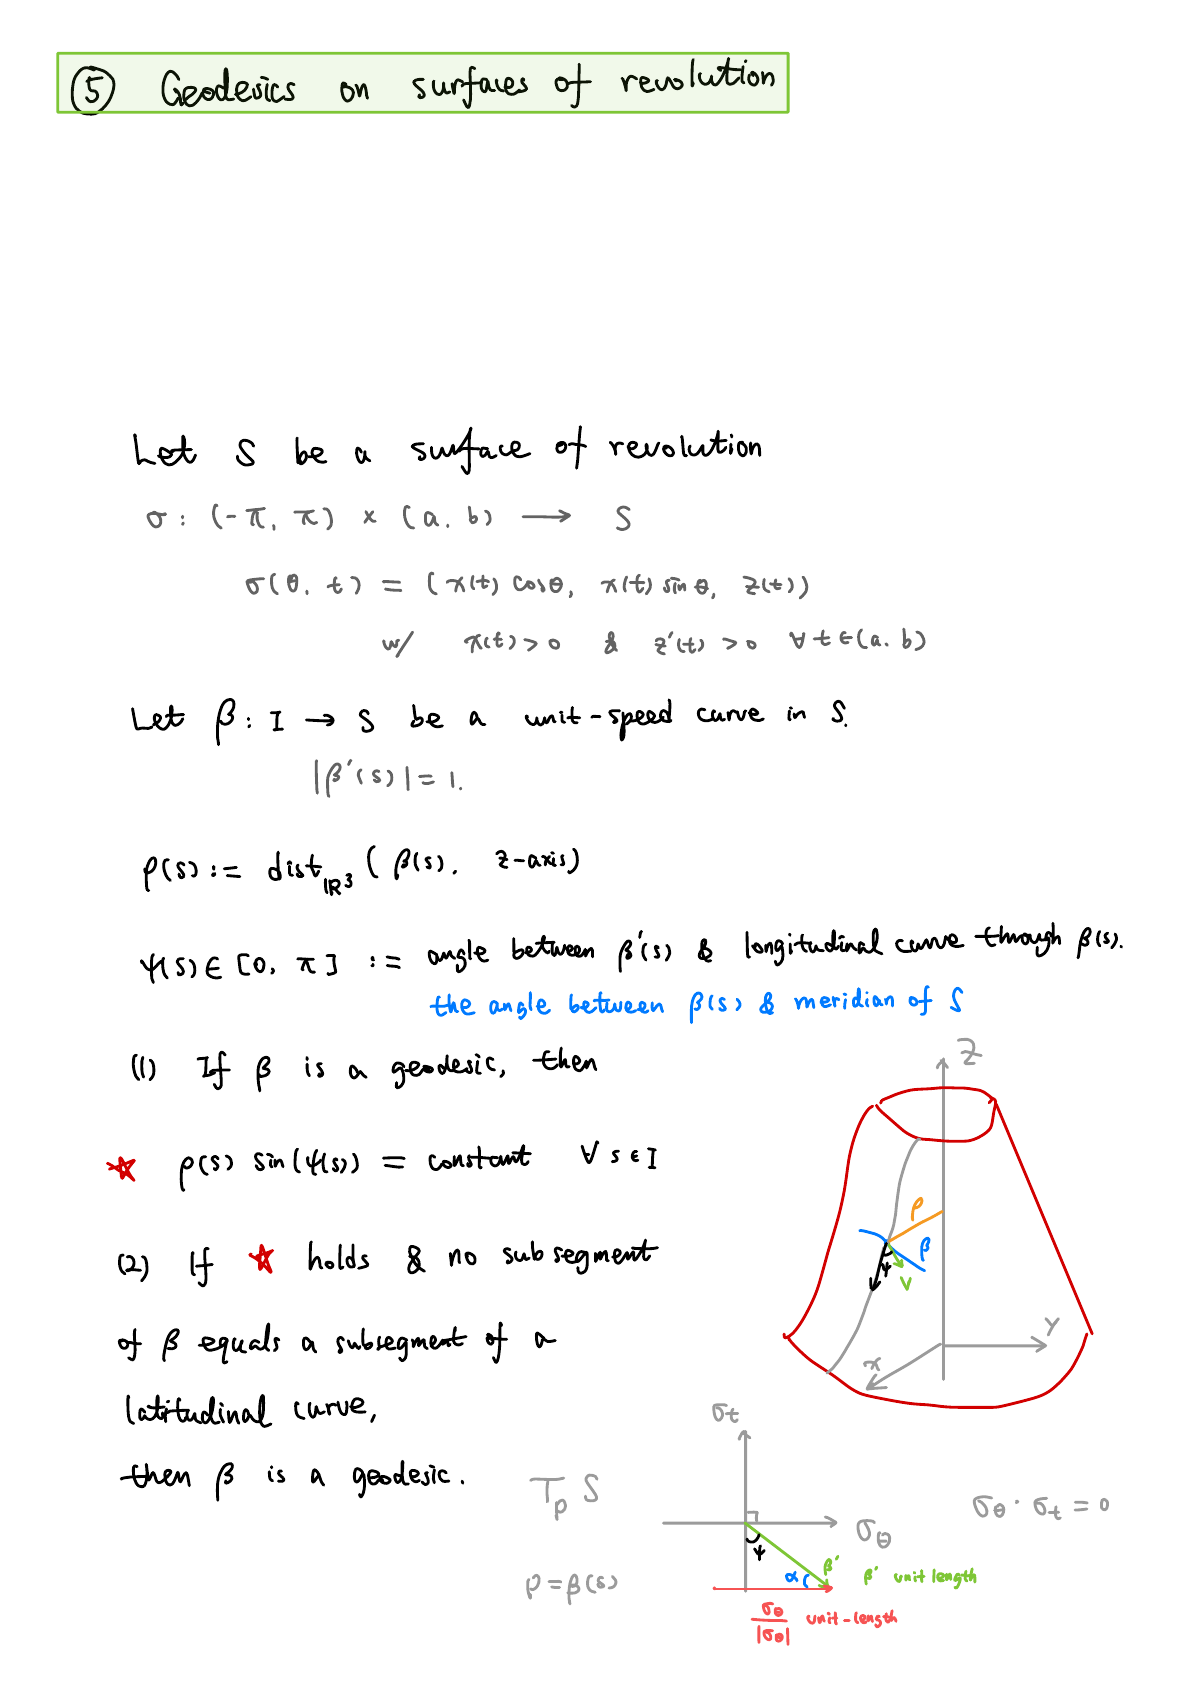 ⑤ Geodesics on surfaces of revolution
Let S be a surface of revolution
σ: (-π, π) × (a, b) → S
σ(θ, t) = (x(t) cosθ, x(t) sin θ, z(t))
w/ x(t) > 0 & z'(t) > 0 ∀ t ∈ (a, b)
Let β: I → S be a unit-speed curve in S.
|β'(s)| = 1.
ρ(s) := dist_ℝ³ (β(s), z-axis)
ψ(s) ∈ [0, π] := angle between β'(s) & longitudinal curve through β(s).
the angle between β(s) & meridian of S
(1) If β is a geodesic, then
☆ ρ(s) sin(ψ(s)) = constant ∀ s ∈ I
(2) If ☆ holds & no subsegment
of β equals a subsegment of a
latitudinal curve,
then β is a geodesic.
Z
ρ
β
ψ
V
Y
x
σt
TpS
σθ
σθ · σt = 0
ψ
β'
α
β' unit length
p = β(s)
σθ/|σθ| unit-length